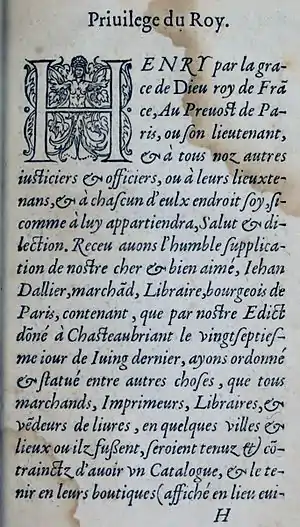 Priuilege du Roy.
HENRY par la gra-
ce de Dieu roy de Frã
ce, Au Preuost de Pa-
ris, ou son lieutenant,
& à tous noz autres
iusticiers & officiers, ou à leurs lieuxte-
nans, & à chascun d'eulx endroit soy, si-
comme à luy appartiendra, Salut & di-
lection. Receu auons l'humble supplica-
tion de nostre cher & bien aimé, Iehan
Dallier, marchãd, Libraire, bourgeois de
Paris, contenant, que par nostre Edict
dõné à Chasteaubriant le vingtsepties-
me iour de Iuing dernier, ayons ordonné
& statué entre autres choses, que tous
marchands, Imprimeurs, Libraires, &
vẽdeurs de liures, en quelques villes &
lieux ou ilz fussent, seroient tenuz & cõ-
trainctz d'auoir vn Catalogue, & le te-
nir en leurs boutiques (affiché en lieu eui-
H